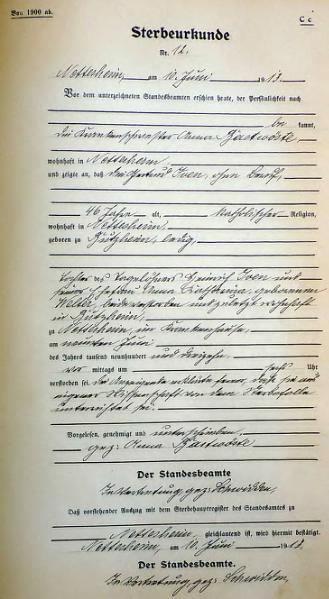 Bau. 1900 ab.
C c
Sterbeurkunde
Nr. 12.
Nettersheim, am 10. Juni 1913.
Vor dem unterzeichneten Standesbeamten erschien heute, der Persönlichkeit nach
be kannt,
die Krankenschwester Anna
wohnhaft in Nettersheim
und zeigte an, daß die Gertrud Iven, ohne Beruf,
46 Jahre alt, katholischer Religion,
wohnhaft in Nettersheim,
geboren zu ledig,
Tochter des Tagelöhners Heinrich Iven und
seiner Ehefrau Anna geborenen
beide verstorben und zuletzt wohnhaft
in
zu Nettersheim, im Krankenhause,
am neunten Juni
des Jahres tausend neunhundert und dreizehn
vor mittags um sechs Uhr
verstorben sei. Die Anzeigende erklärte ferner, daß sie aus
eigener Wissenschaft von dem Sterbefalle
unterrichtet sei.
Vorgelesen, genehmigt und unterschrieben
gez. Anna
Der Standesbeamte
In Vertretung gez.
Daß vorstehender Auszug mit dem Sterbehauptregister des Standesamtes zu
Nettersheim, gleichlautend ist, wird hiermit bestätigt.
Nettersheim, am 10. Juni 1913.
Der Standesbeamte.
In Vertretung, gez.